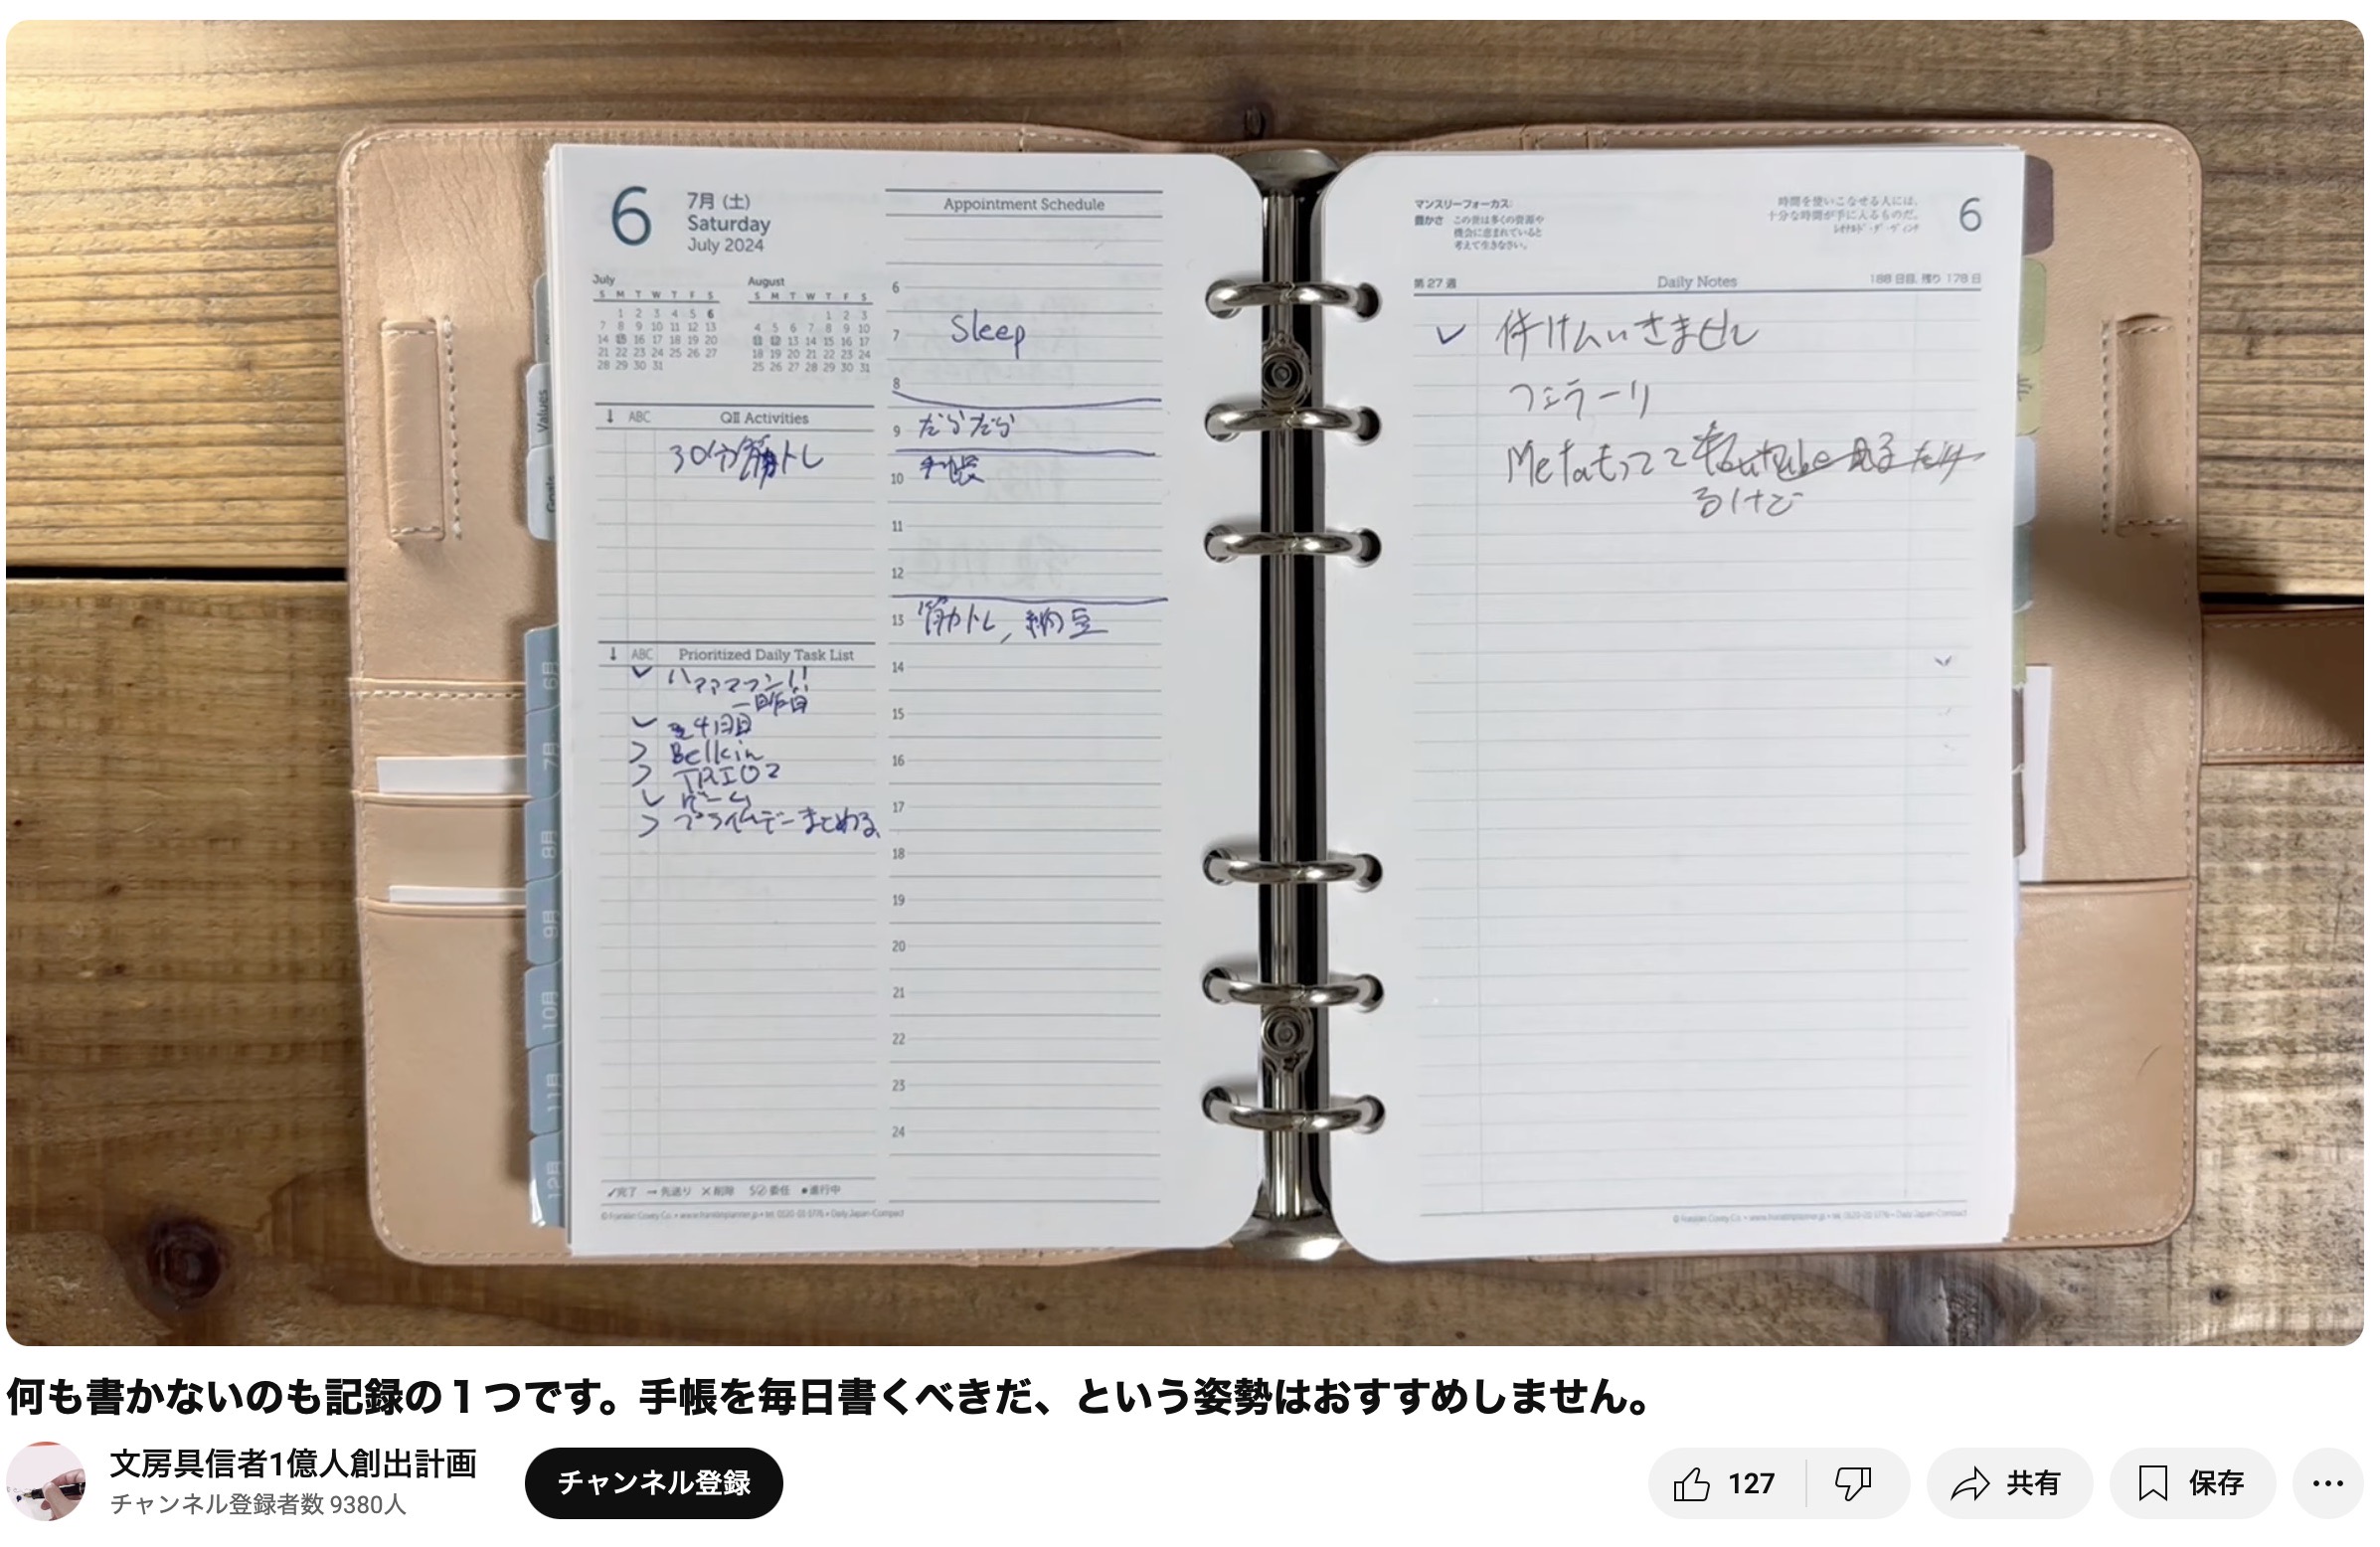 6
7月 (土)
Saturday
July 2024
July
S M T W T F S
1 2 3 4 5 6
7 8 9 10 11 12 13
14 15 16 17 18 19 20
21 22 23 24 25 26 27
28 29 30 31
August
S M T W T F S
1 2 3
4 5 6 7 8 9 10
11 12 13 14 15 16 17
18 19 20 21 22 23 24
25 26 27 28 29 30 31
↓ ABC QII Activities
30分筋トレ
↓ ABC Prioritized Daily Task List
一昨日
4日目
Belkin
TRIO2
ゲーム
プライムデーまとめる
✓完了 →先送り ×削除 委任 ●進行中
Appointment Schedule
6
7 Sleep
8
9 だらだら
10 手帳
11
12
13 筋トレ, 納豆
14
15
16
17
18
19
20
21
22
23
24
Values
Goals
6月
7月
8月
9月
10月
11月
12月
マンスリーフォーカス:
豊かさ この世は多くの資源や
機会に恵まれていると
考えて生きなさい。
時間を使いこなせる人には、
十分な時間が手に入るものだ。
レオナルド・ダ・ヴィンチ
6
第27週 Daily Notes 188日目, 残り 178日
フェラーリ
Metaもってて
るけど
何も書かないのも記録の1つです。手帳を毎日書くべきだ、という姿勢はおすすめしません。
文房具信者1億人創出計画
チャンネル登録者数 9380人
チャンネル登録
127
共有
保存